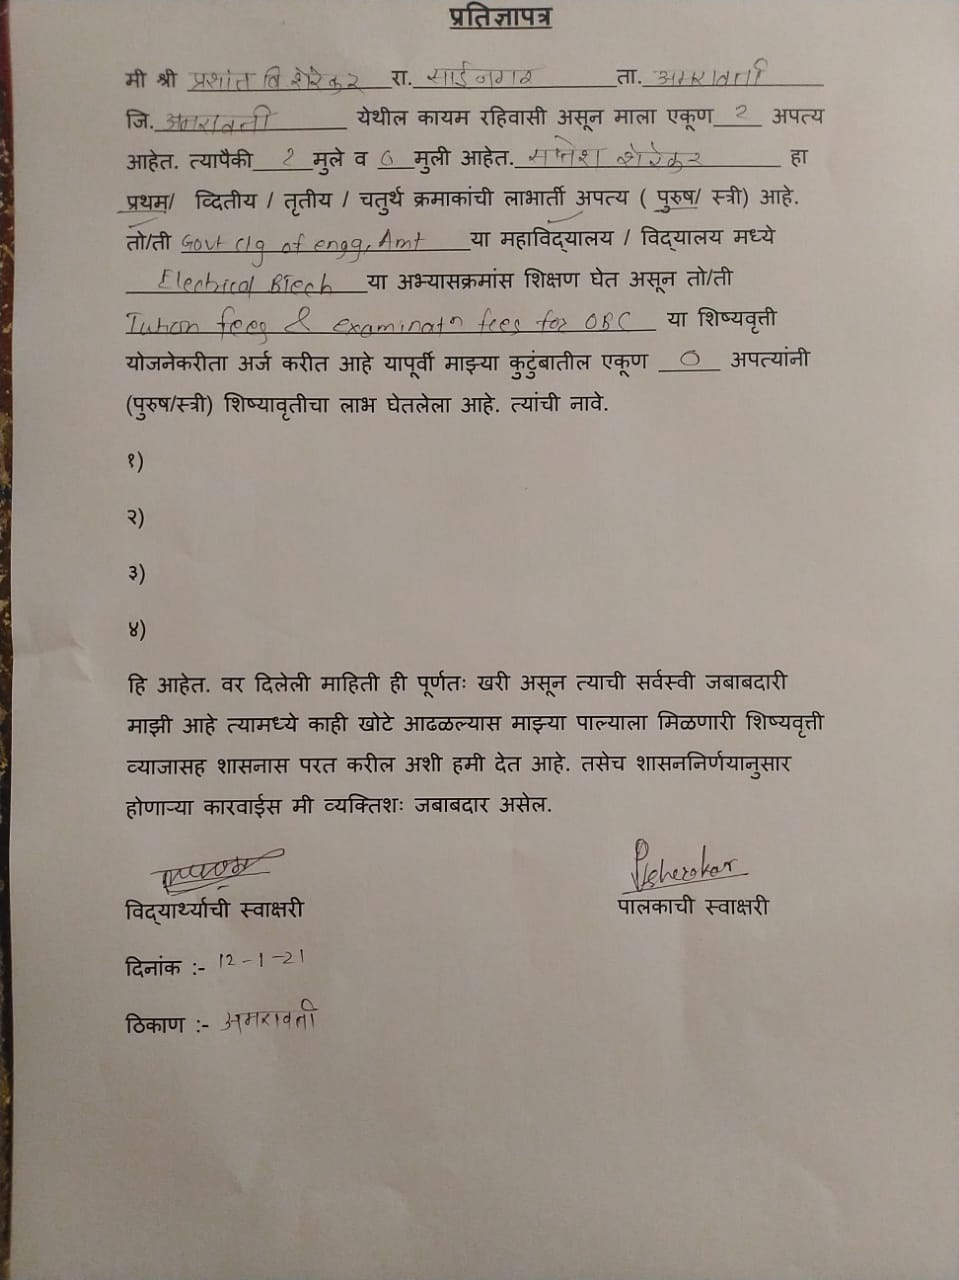 प्रतिज्ञापत्र
मी श्री प्रशांत वि शेरेकर रा. साईनगर ता. अमरावती
जि. अमरावती येथील कायम रहिवासी असून माला एकूण 2 अपत्य
आहेत. त्यापैकी 2 मुले व 0 मुली आहेत. शेरेकर हा
प्रथम/ व्दितीय / तृतीय / चतुर्थ क्रमाकांची लाभार्ती अपत्य ( पुरुष/ स्त्री) आहे.
तो/ती Govt clg of engg, Amt या महाविद्यालय / विद्यालय मध्ये
Electrical BTech या अभ्यासक्रमांस शिक्षण घेत असून तो/ती
Tution fees & examinatn fees for OBC या शिष्यवृत्ती
योजनेकरीता अर्ज करीत आहे यापूर्वी माझ्या कुटुंबातील एकूण 0 अपत्यांनी
(पुरुष/स्त्री) शिष्यावृतीचा लाभ घेतलेला आहे. त्यांची नावे.
१)
२)
३)
४)
हि आहेत. वर दिलेली माहिती ही पूर्णतः खरी असून त्याची सर्वस्वी जबाबदारी
माझी आहे त्यामध्ये काही खोटे आढळल्यास माझ्या पाल्याला मिळणारी शिष्यवृत्ती
व्याजासह शासनास परत करील अशी हमी देत आहे. तसेच शासननिर्णयानुसार
होणाऱ्या कारवाईस मी व्यक्तिशः जबाबदार असेल.
Psherekar
विद्यार्थ्याची स्वाक्षरी पालकाची स्वाक्षरी
दिनांक :- 12-1-21
ठिकाण :- अमरावती